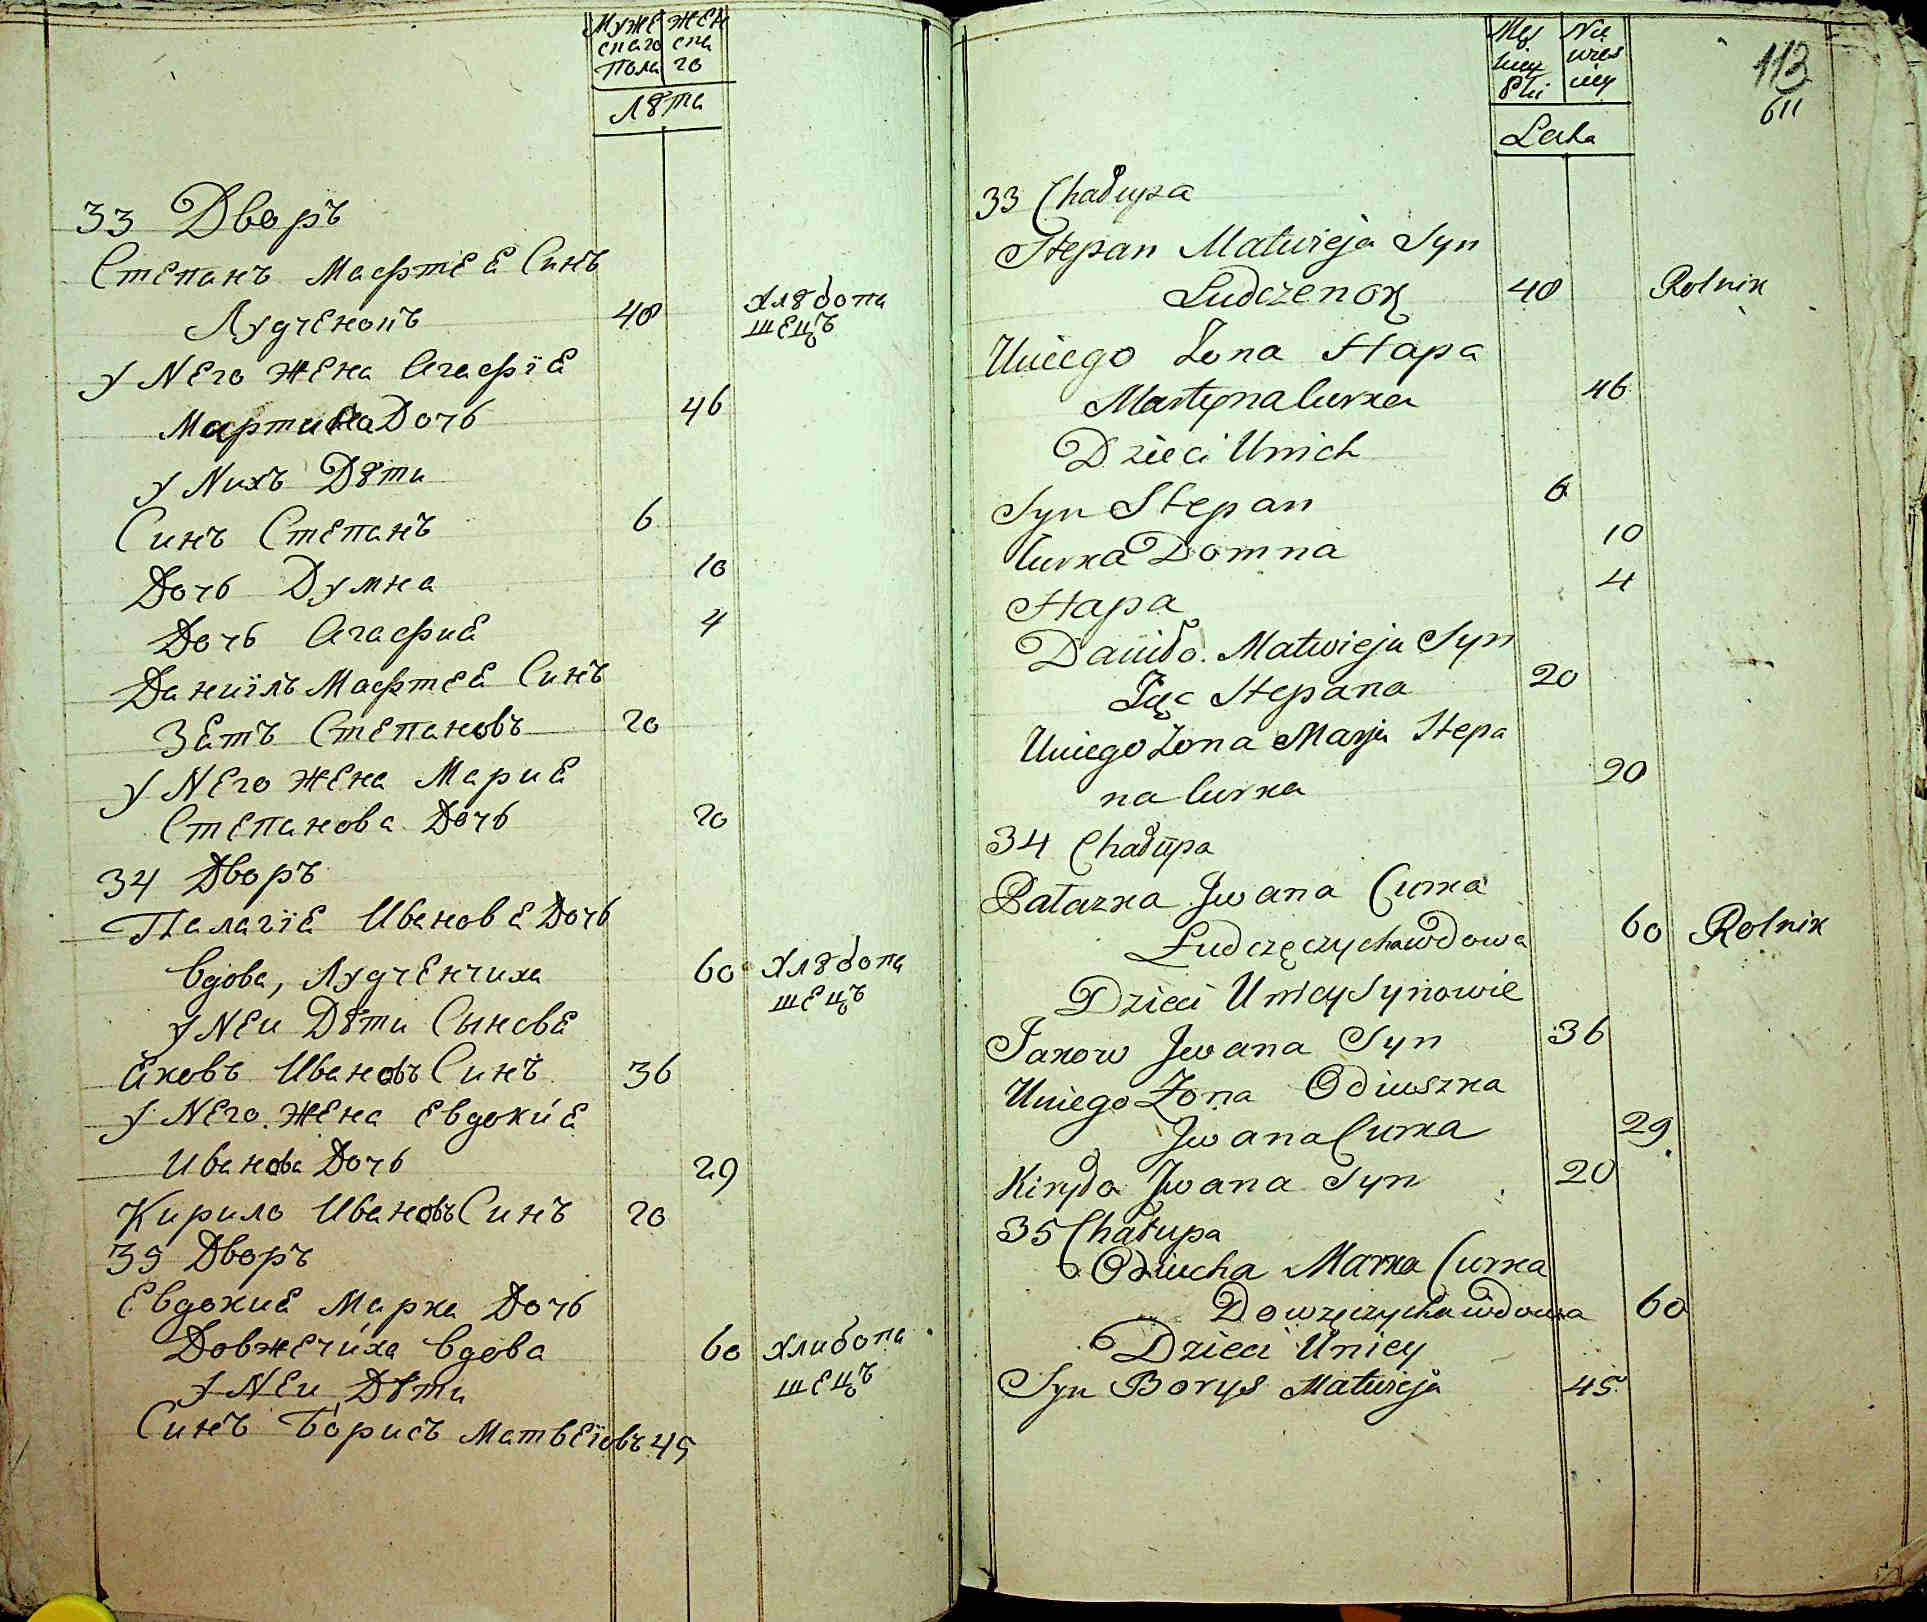 Муже жен
скаго ска
Пола го
Лѣта
33 Дворъ
Степанъ Мафтеа Синъ
Лудченокъ 40 хлѣбопа
шецъ
у Него жена Агафїа
Мартинова Дочь 46
у Нихъ Дѣти
Синъ Степанъ 6
Дочь Думна 10
Дочь Агафиа 4
Даниїлъ Мафтеа Синъ
Зать Степановъ 20
у Него жена Мариа
Степанова Дочь 20
34 Дворъ
Палагїа Иванова Дочь
вдова, Лудченчиха 60 хлѣбопа
шецъ
у Неи Дѣти Сынове
Яковъ Ивановъ Синъ 36
у Него жена Евдокиа
Иванова Дочь 29
Кирило Ивановъ Синъ 20
35 Дворъ
Евдокиа Марка Дочь
Довжечиха вдова 60 хлибопа
шецъ
у Неи Дѣти
Синъ Борисъ Матвеїовъ 45
113
611
Lecha
33 Chałupa
Stepan Matwieja Syn
Ludczenok 40 Rolnik
Uniego Zona Hapa
Martyna Curka 46
Dzieci Unich
Syn Stepan 6
Curka Domna 10
Hapa 4
Daniło Matwieja Syn
Zięc Stepana 20
Uniego Zona Marja Stepa
na Curka 20
34 Chałupa
Pałazka Jwana Curka
Ludczęczycha wdowa 60 Rolnik
Dzieci Unicy Synowie
Jakow Jwana Syn 36
Uniego Zona Odiuszka
Jwana Curka 29
Kiryło Jwana Syn 20
35 Chałupa
Odiucha Marka Curka
Dowzęczycha wdowa 60
Dzieci Unicy
Syn Borys Matwieja 45